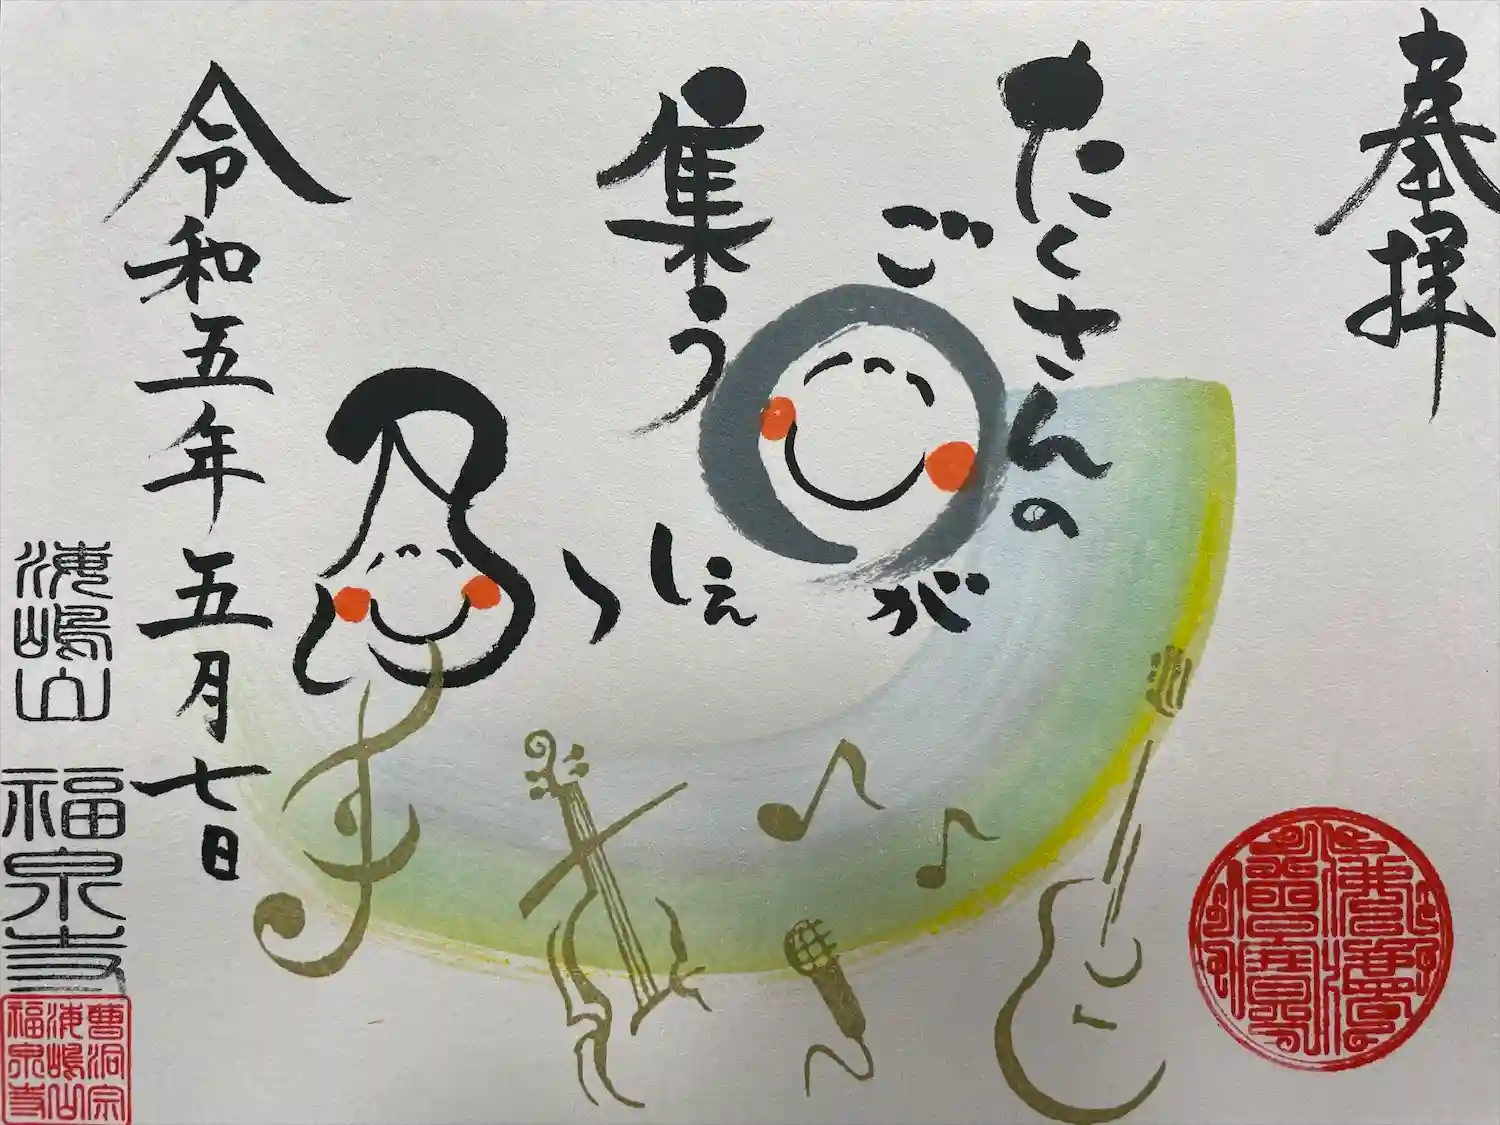 奉拝
たくさんの
ご
が
集う
令和五年五月七日
海嶋山
福泉寺
曹洞宗
海嶋山
福泉寺